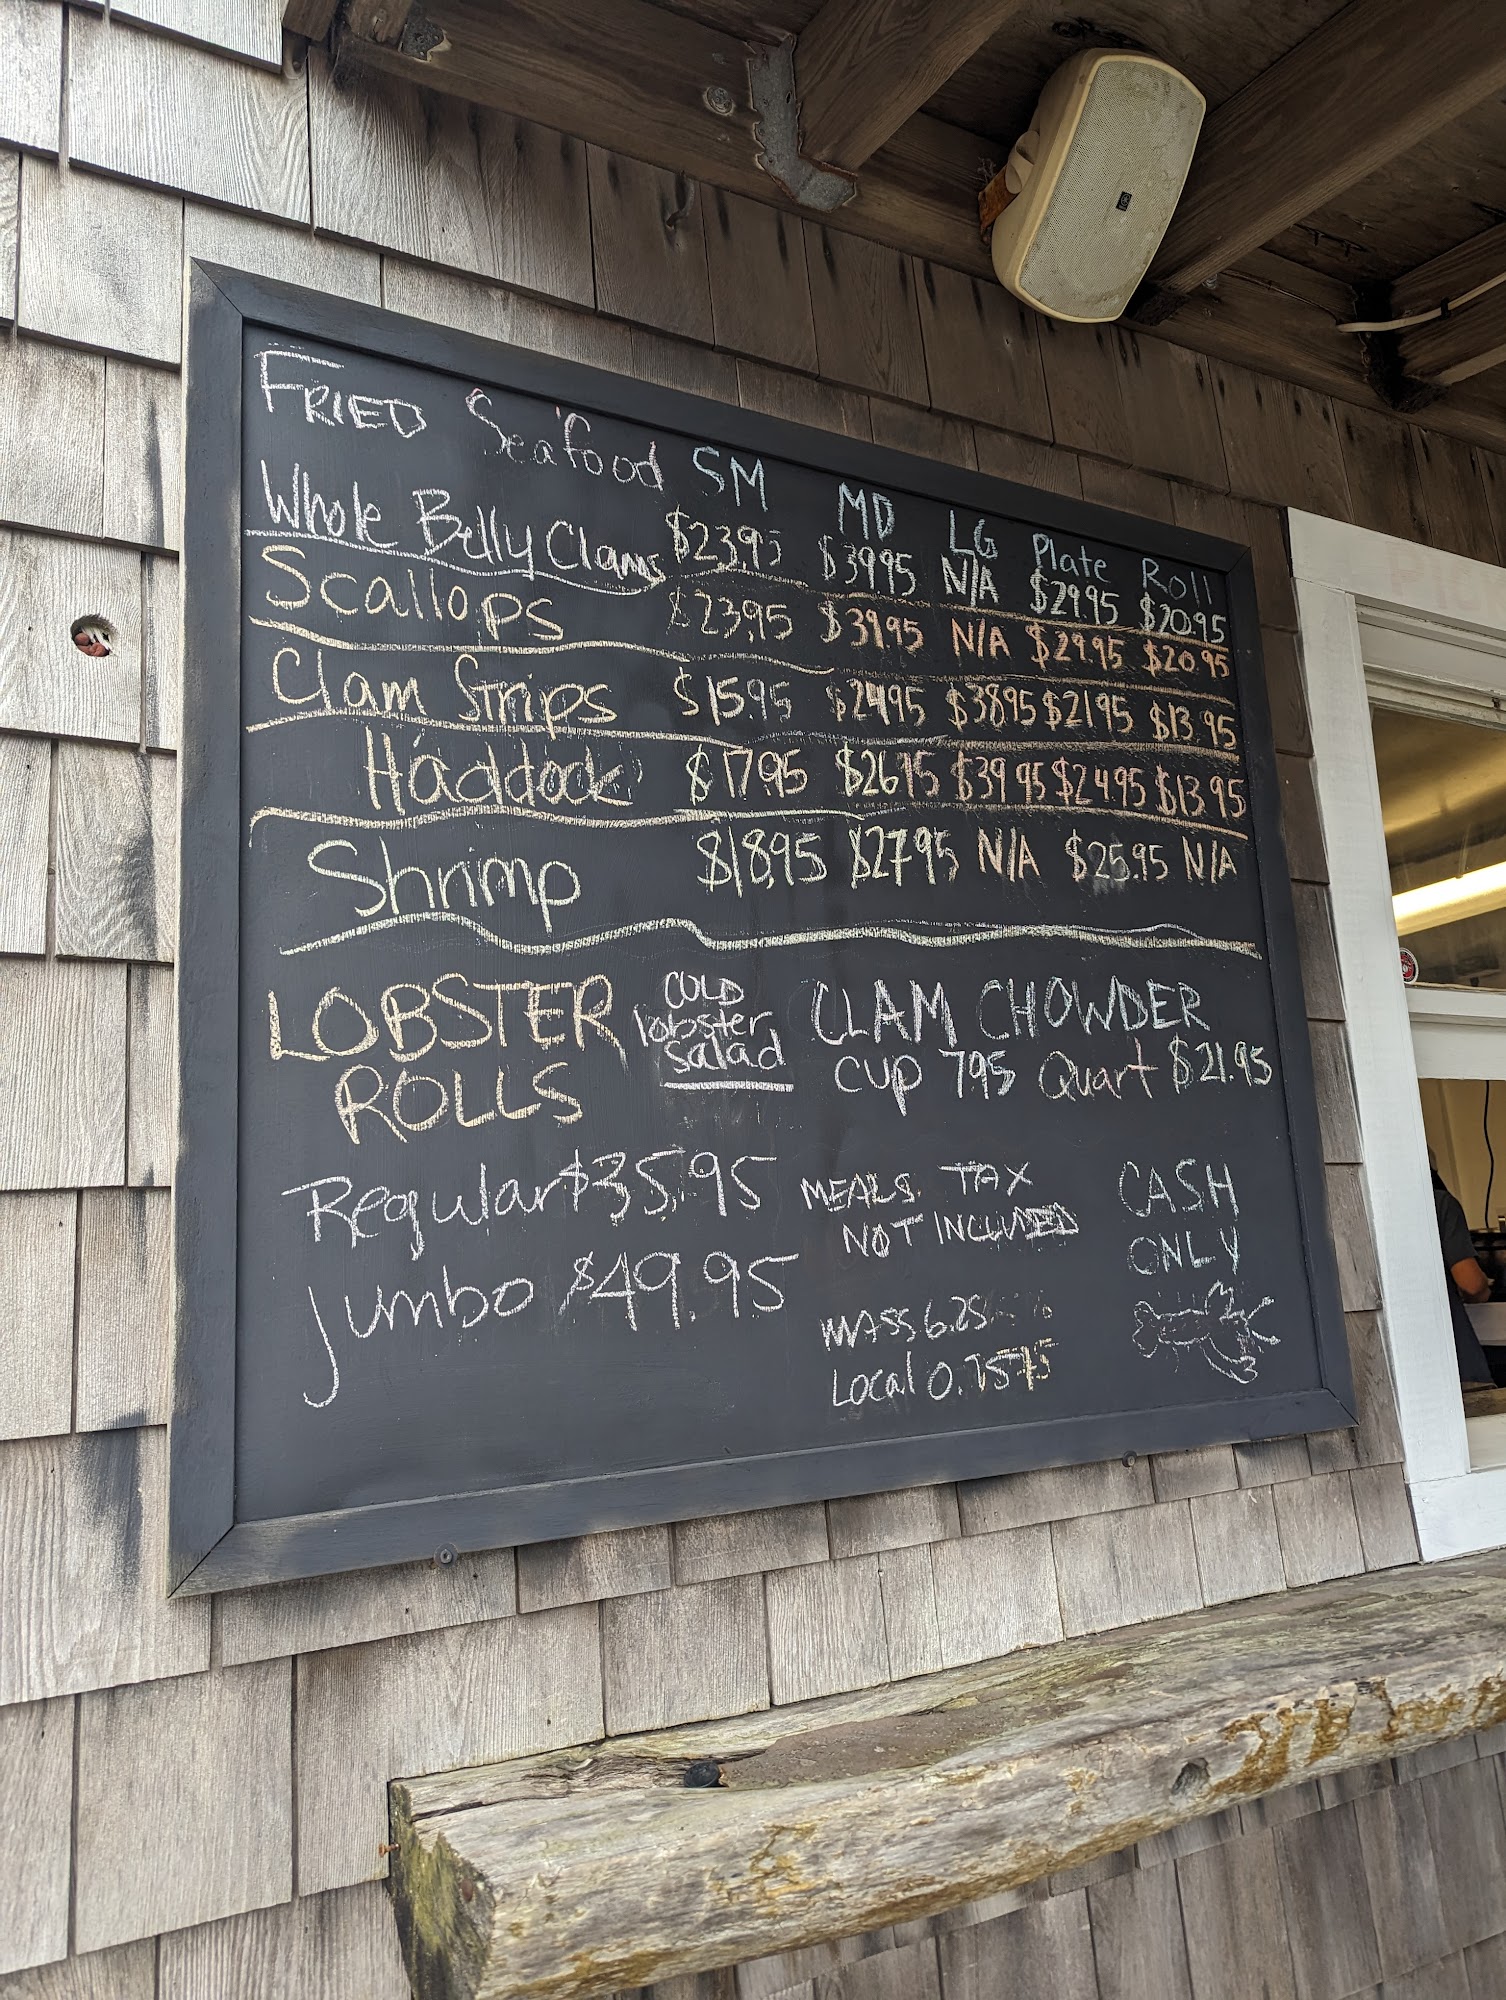 FRIED Seafood SM MD LG Plate Roll
Whole Belly Clams $23.95 $39.95 N/A $29.95 $20.95
Scallops $23.95 $39.95 N/A $29.95 $20.95
Clam Strips $15.95 $24.95 $38.95 $21.95 $13.95
Haddock $17.95 $26.95 $39.95 $24.95 $13.95
Shrimp $18.95 $27.95 N/A $25.95 N/A
LOBSTER
ROLLS
COLD
lobster
salad
CLAM CHOWDER
CUP 7.95 Quart $21.95
Regular $35.95
Jumbo $49.95
MEALS TAX
NOT INCLUDED
CASH
ONLY
MASS 6.25
Local 0.75